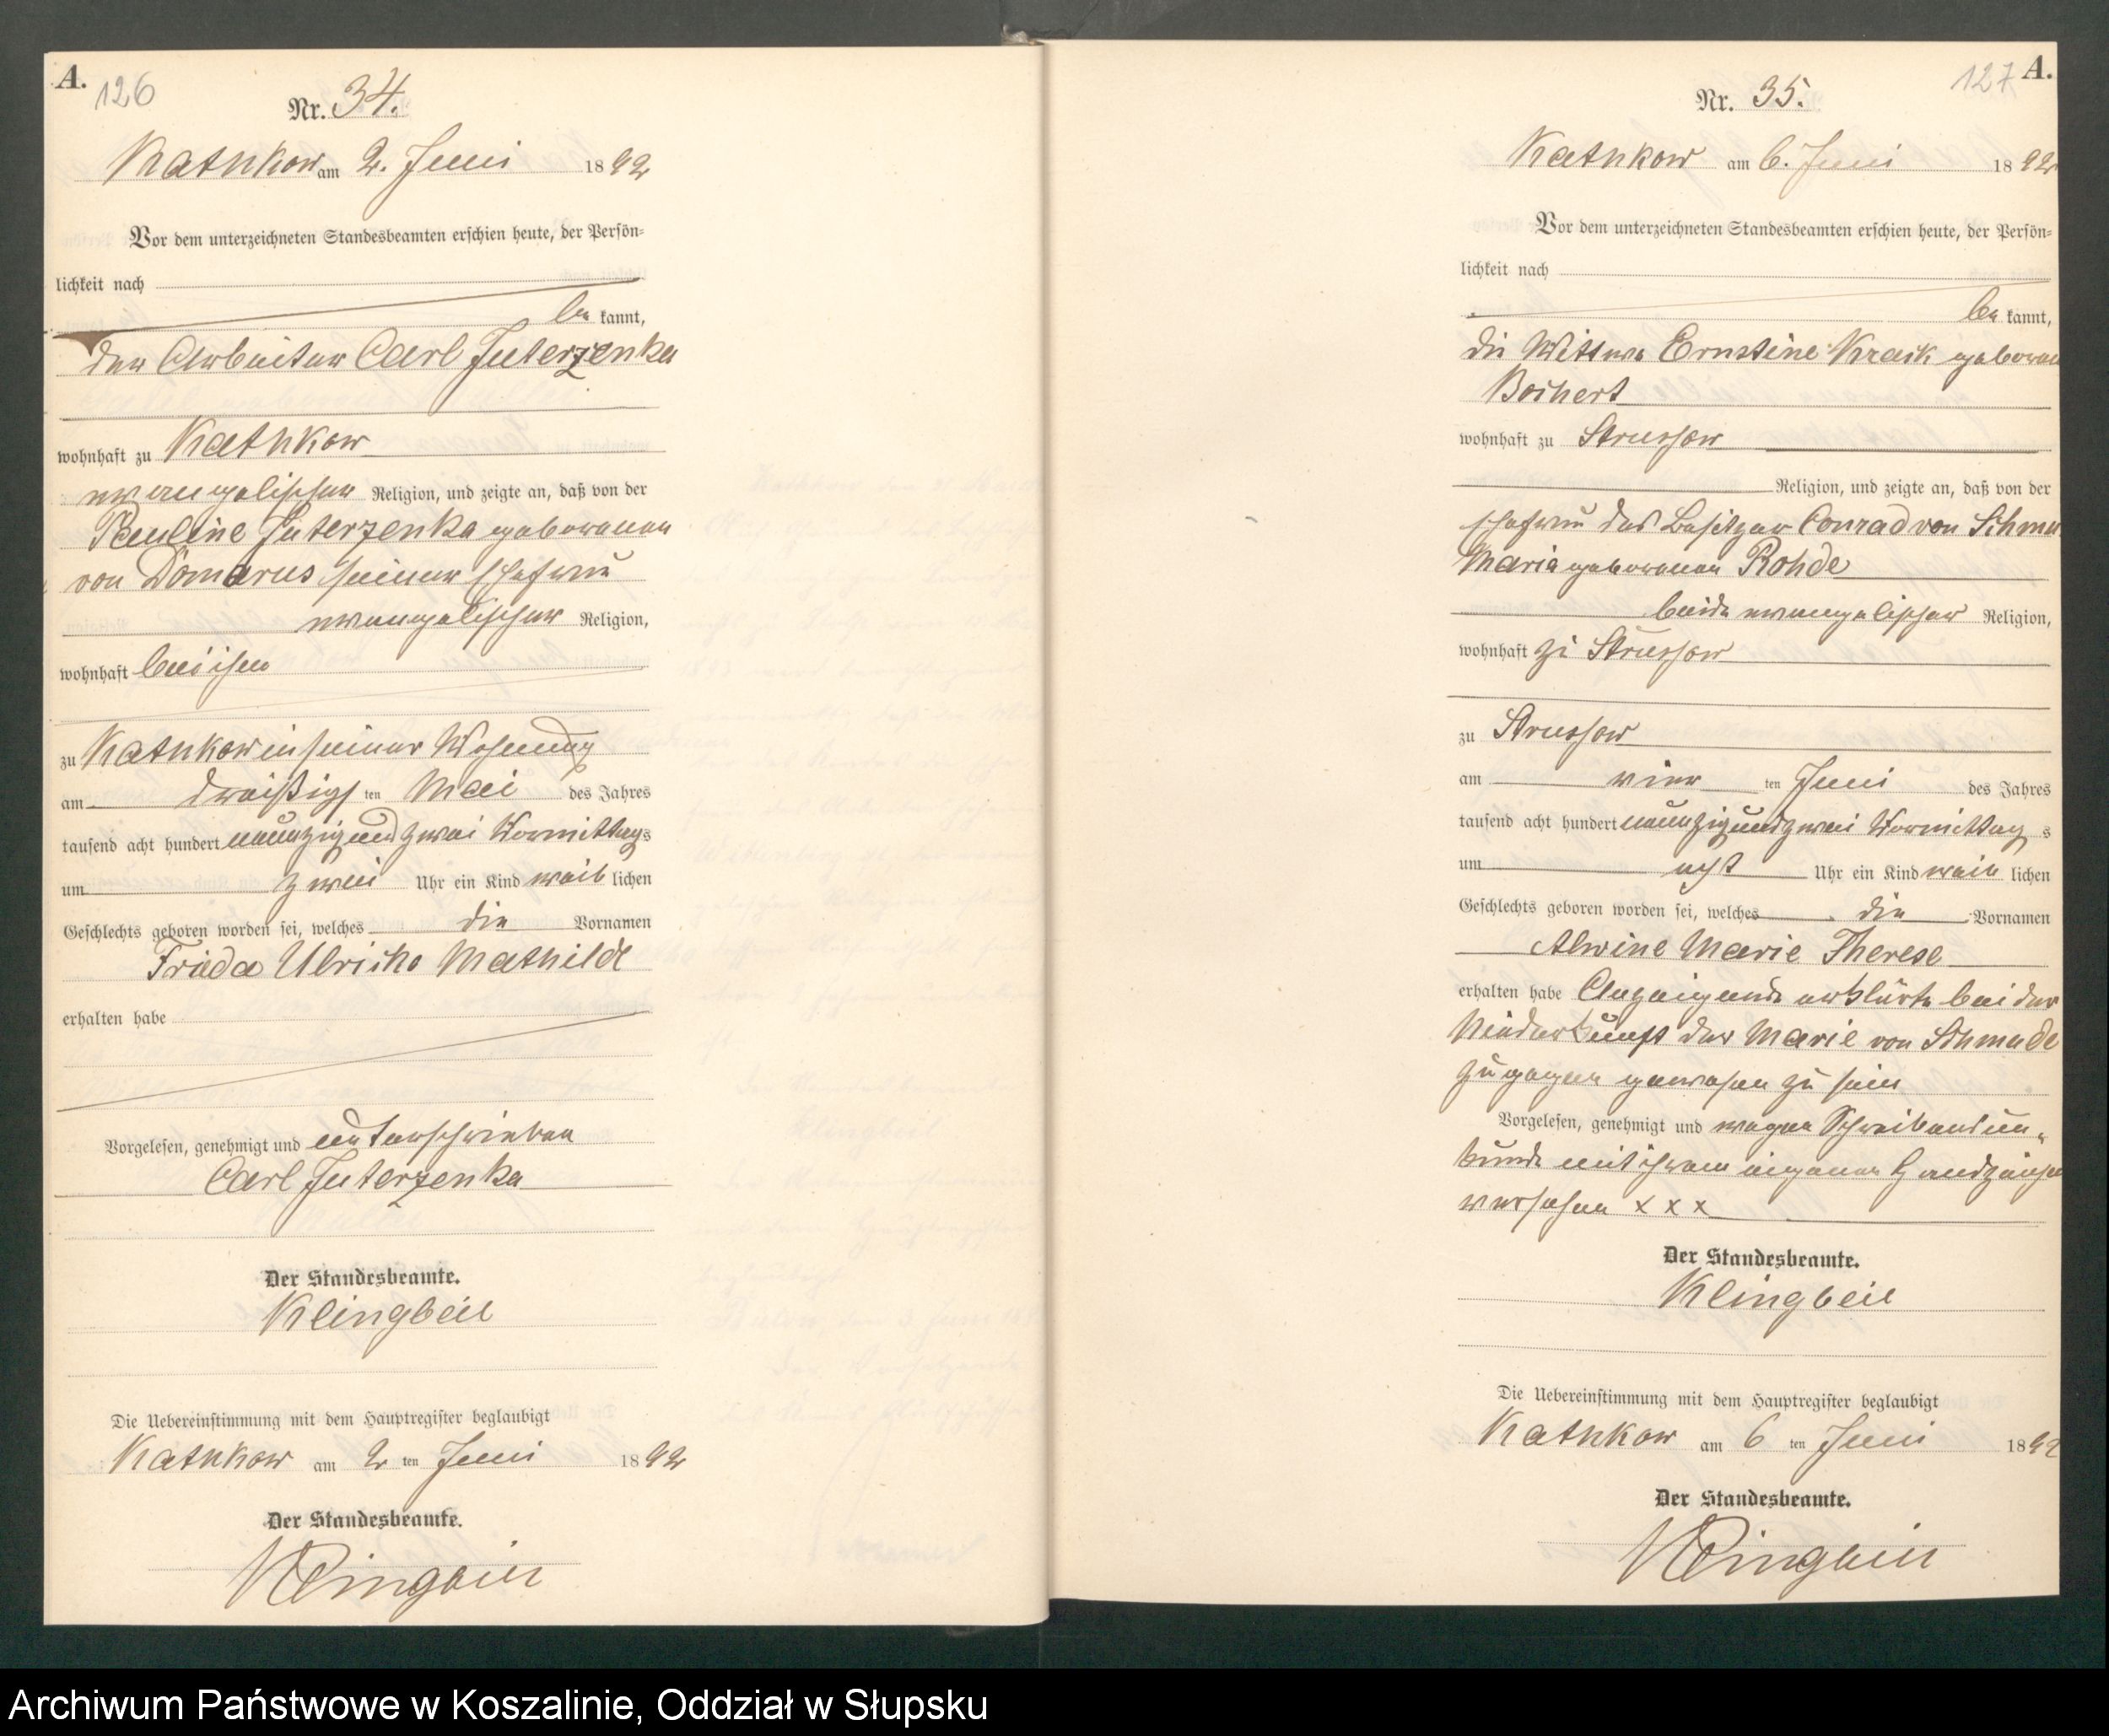 A.
126
Nr. 34.
Kathkow am 2. Juni 1892
Vor dem unterzeichneten Standesbeamten erschien heute, der Persön-
lichkeit nach
be kannt,
der Arbeiter Carl Juterzenka
wohnhaft zu Kathkow
evangelischer Religion, und zeigte an, daß von der
Pauline Juterzenka geborenen
von Domarus seiner Ehefrau
evangelischer Religion,
wohnhaft bei ihm
zu Kathkow in seiner Wohnung
am dreißigs ten Mai des Jahres
tausend acht hundert neunzig und zwei Vormittags
um zwei Uhr ein Kind weib lichen
Geschlechts geboren worden sei, welches die Vornamen
Frieda Ulricke Mathilde
erhalten habe
Vorgelesen, genehmigt und unterschrieben
Carl Juterzenka
Der Standesbeamte.
Klingbeil
Die Uebereinstimmung mit dem Hauptregister beglaubigt
Kathkow am 2 ten Juni 1892
Der Standesbeamte.
Klingbeil
127
A.
Nr. 35.
Kathkow am 6. Juni 1892
Vor dem unterzeichneten Standesbeamten erschien heute, der Persön-
lichkeit nach
be kannt,
die Wittwe Ernstine geboren
Borchert
wohnhaft zu Strussow
Religion, und zeigte an, daß von der
Ehefrau des Besitzer Conrad von Schmu
Maria geborenen Rohde
beide evangelischer Religion,
wohnhaft zu Strussow
zu Strussow
am vier ten Juni des Jahres
tausend acht hundert neunzig und zwei Vormittag s
um acht Uhr ein Kind weib lichen
Geschlechts geboren worden sei, welches die Vornamen
Alwine Marie Therese
erhalten habe Anzeigende erklärte bei der
Niederkunft der Marie von Schmude
zugegen gewesen zu sein
Vorgelesen, genehmigt und wegen Schreibensun-
kunde mit ihrem eigenen Handzeichen
versehen x x x
Der Standesbeamte.
Klingbeil
Die Uebereinstimmung mit dem Hauptregister beglaubigt
Kathkow am 6 ten Juni 1892
Der Standesbeamte.
Klingbeil
Archiwum Państwowe w Koszalinie, Oddział w Słupsku